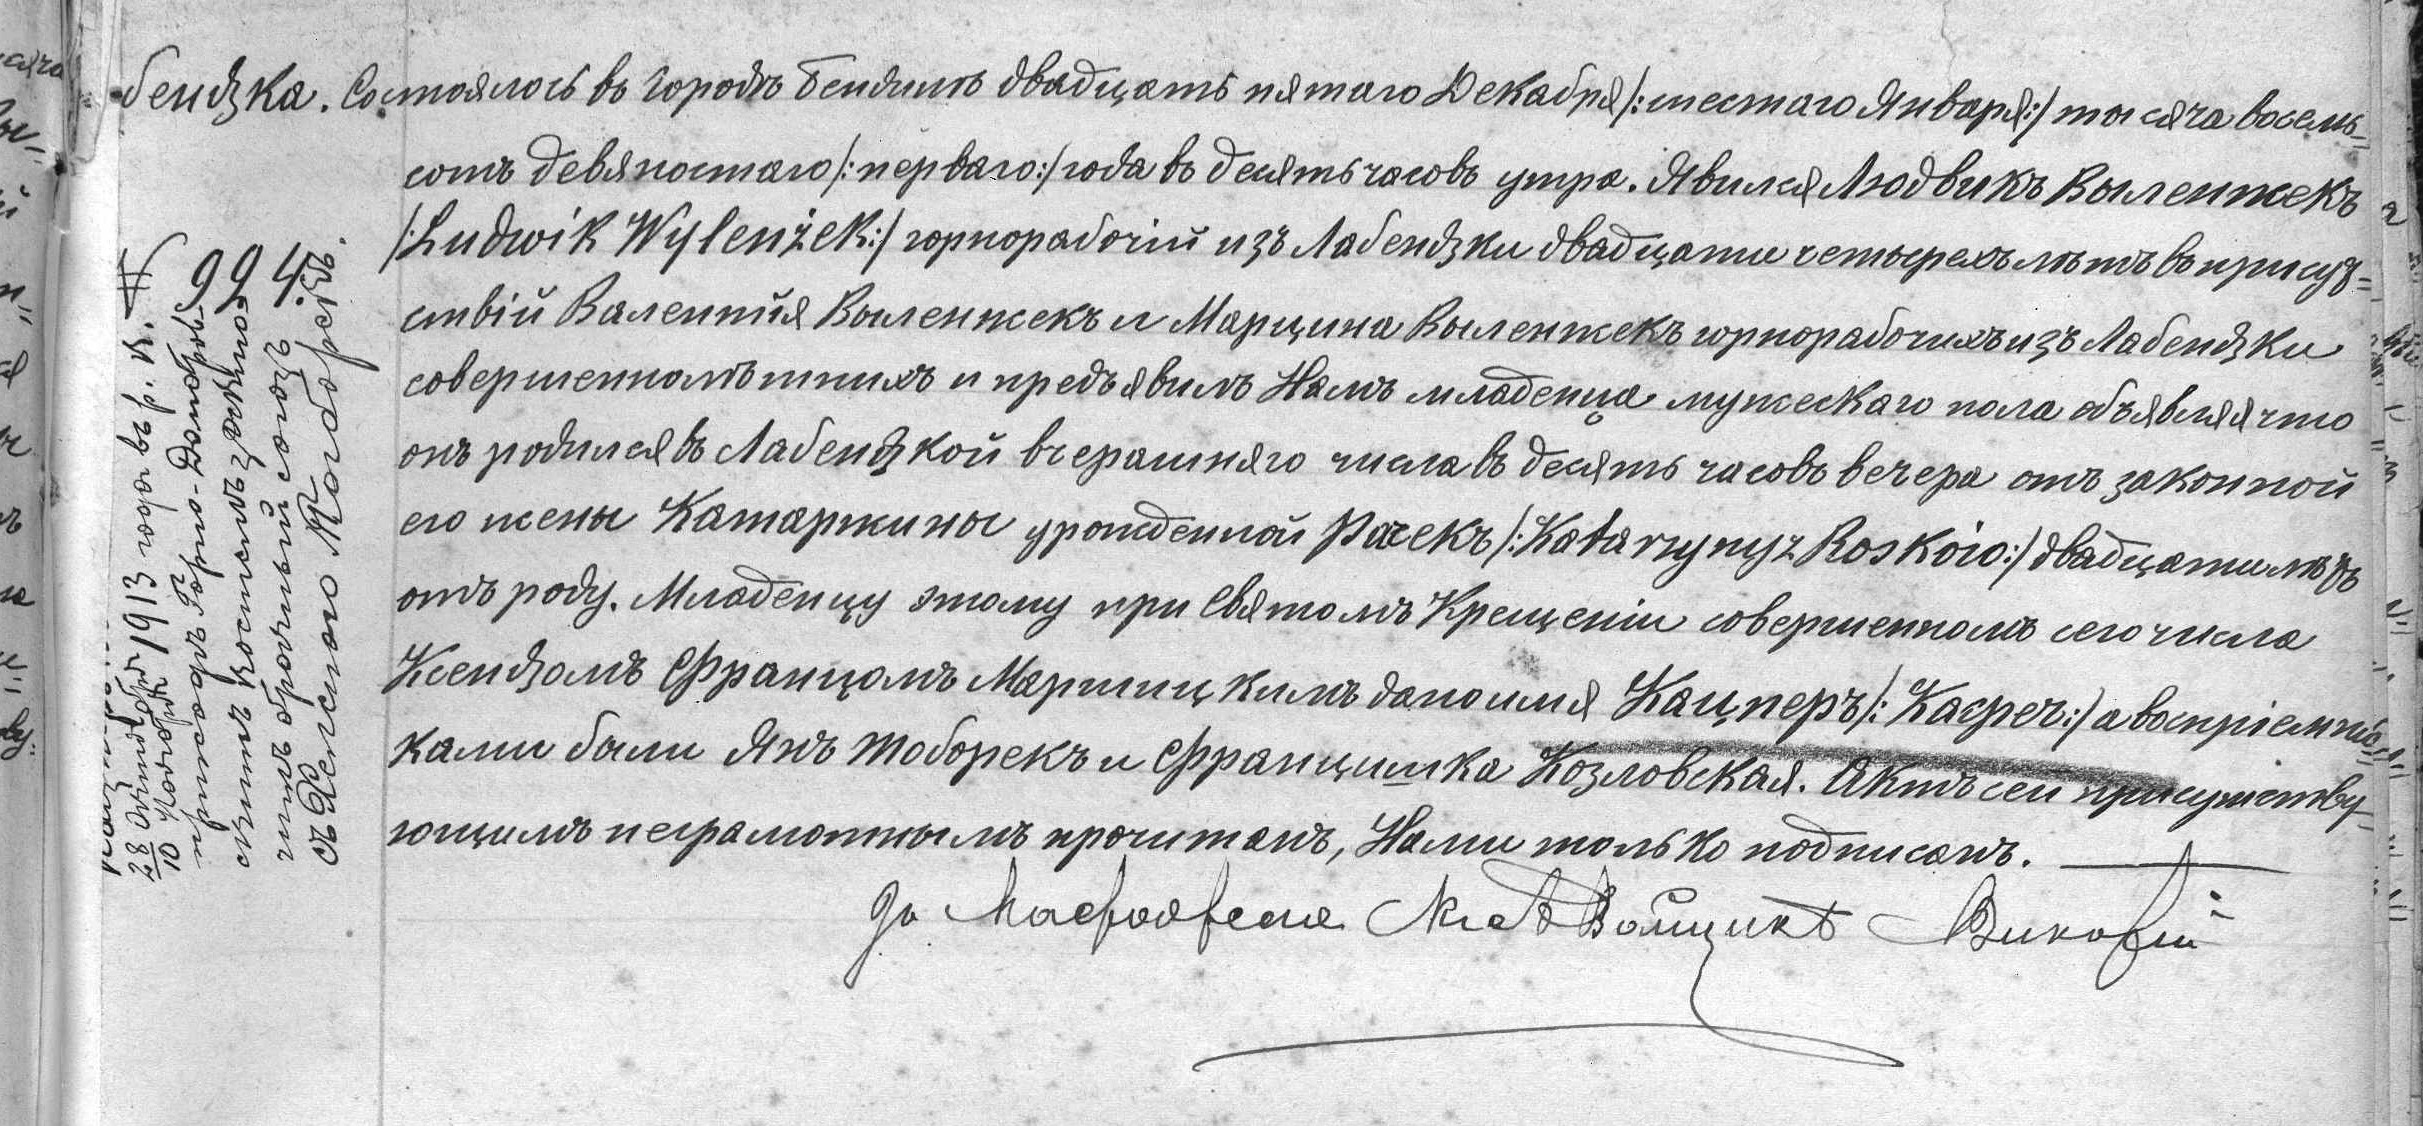 бендзка. Состоялось въ городѣ Бендинѣ двадцать пятаго Декабря /:шестаго Января:/ тысяча восемь=
сотъ девяностаго /:перваго:/ года въ десять часовъ утра. Явился Людвикъ Выленжекъ
/:Ludwik Wylenżek:/ горнорабочій изъ Лабендзки двадцати четырехъ лѣтъ въ присуд=
ствій Валентія Выленжекъ и Марцина Выленжекъ горнорабочихъ изъ Лабендзки
совершеннолѣтнихъ и предъявилъ Намъ младенца мужескаго пола объявляя что
онъ родился въ Лабендзкой вчерашняго числа въ десять часовъ вечера отъ законной
его жены Катаржины урожденной /:Katarzyny z :/ двадцати лѣтъ
отъ роду. Младенцу этому при Святомъ Крещеніи совершенномъ сего числа
Ксендзомъ Францомъ дано имя Кацперъ /:Kacper:/ а воспріемни=
ками были Янъ Тоборекъ и Францишка Козловская. Актъ сей присутству=
ющимъ неграмотнымъ прочитанъ, Нами только подписанъ.
Викарій
№ 994.
28 Октября
10 Ноября 1913 года въ р. к.
приходѣ Горно-Домбров-
скимъ костелѣ заключ-
илъ брачный союзъ
съ